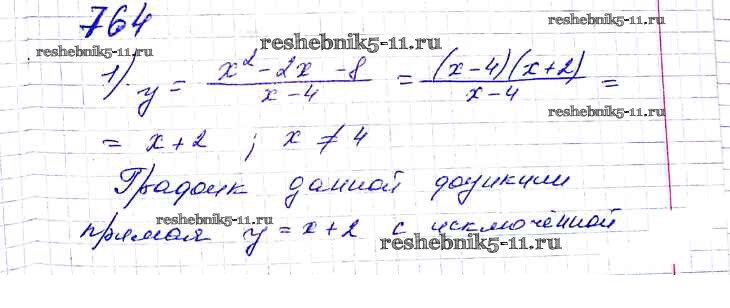 764
reshebnik5-11.ru
reshebnik5-11.ru
reshebnik5-11.ru
1). y = (x² - 2x - 8)/(x - 4) = ((x - 4)(x + 2))/(x - 4) =
reshebnik5-11.ru
= x + 2 ; x ≠ 4
График данной функции
reshebnik5-11.ru
прямая y = x + 2 с исключённой
reshebnik5-11.ru